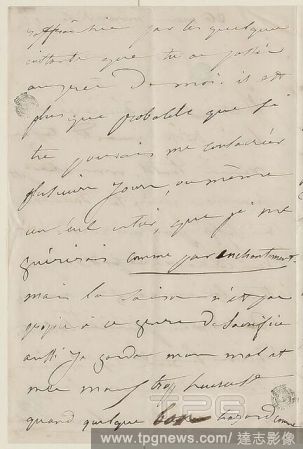 par les quelques
instants que tu as passé
auprès De moi. il est
plus que probable que si
tu pouvais me consacrer
plusieurs jours, ou même
un seul entier, que je me
guérirais comme par enchantement.
mais la saison n'est pas
propice à ce genre De Sacrifice
aussi je garde mon mal et
trop heureuse
quand quelque bon hazard comme
TPG
IMAGES
www.tpgnews.com/達志影像